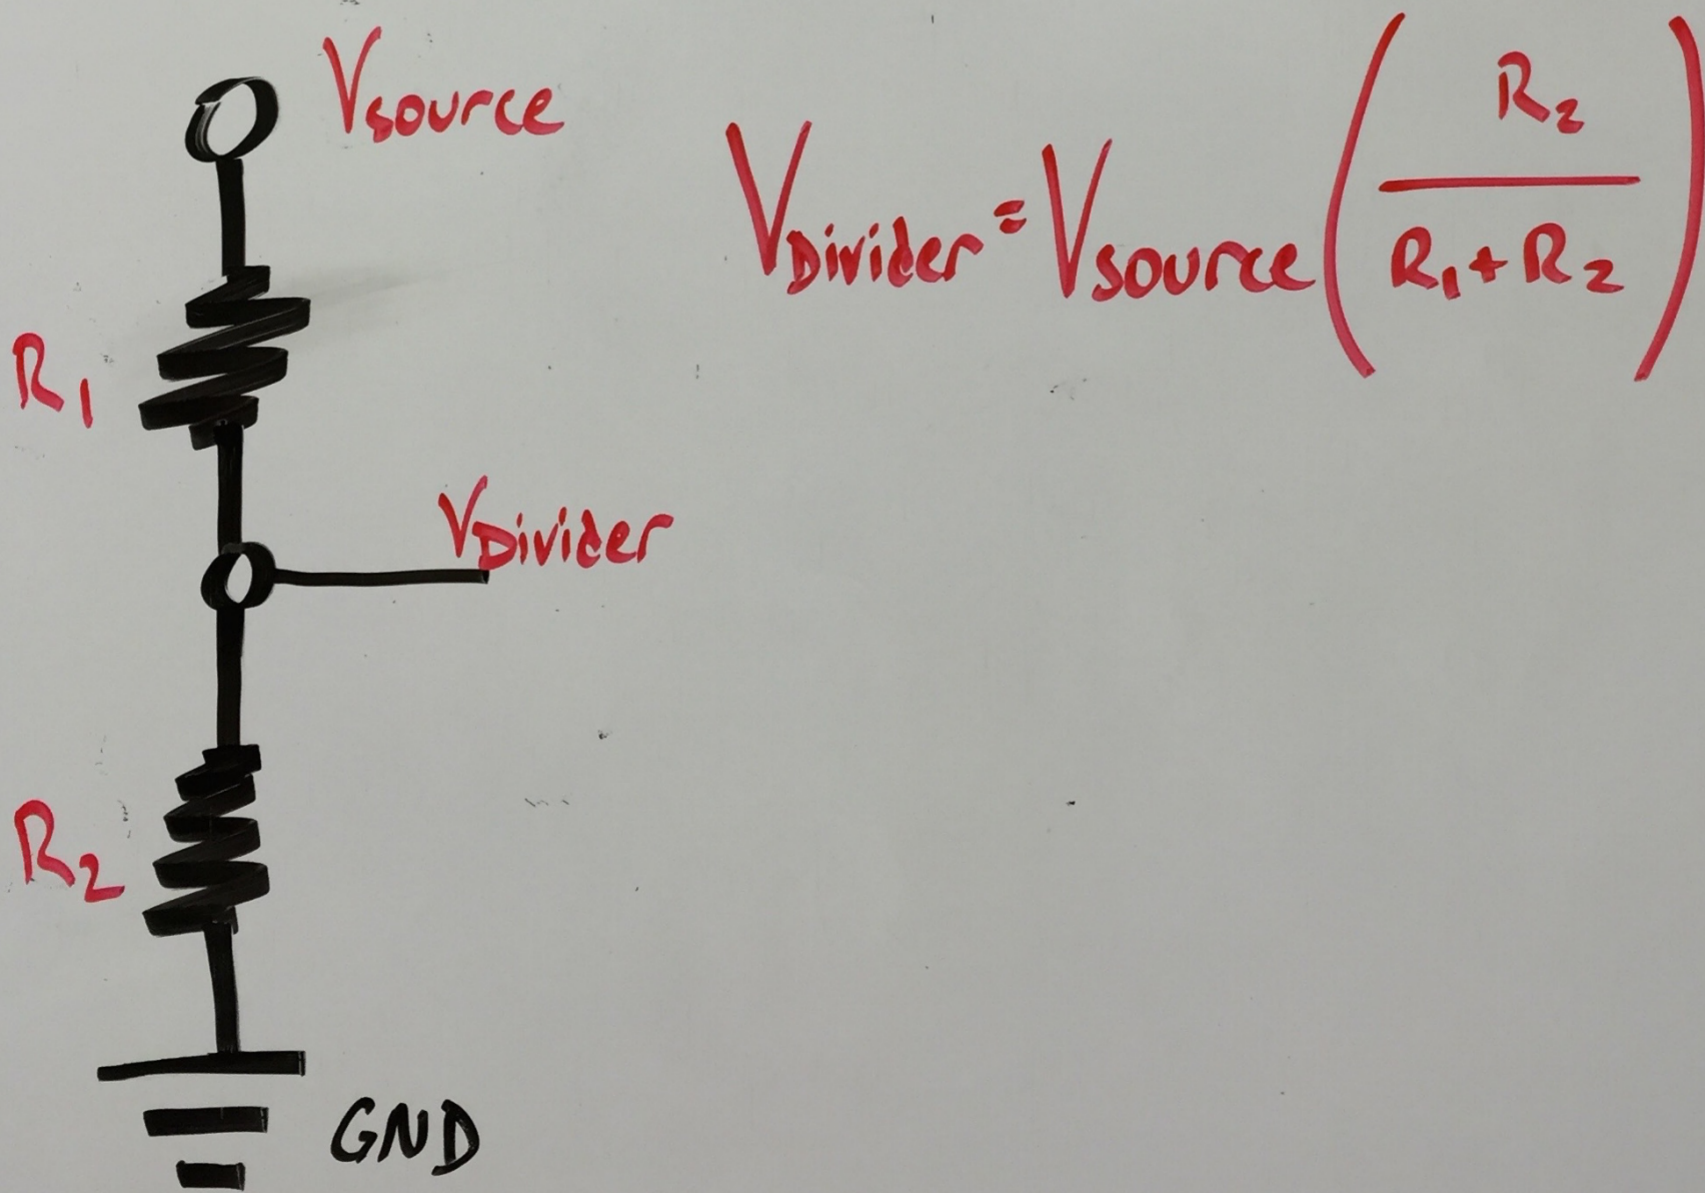 Vsource
VDivider = Vsource (R2 / R1 + R2)
R1
VDivider
R2
GND